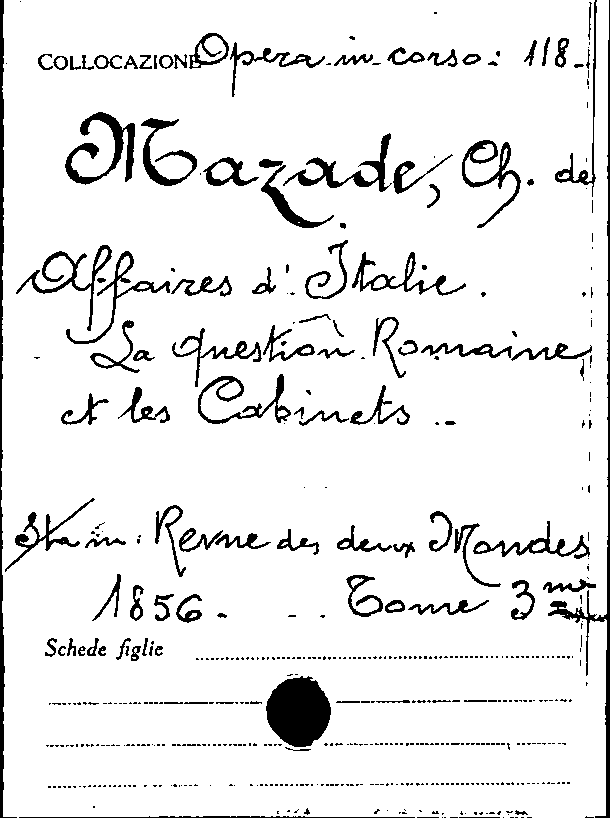 COLLOCAZIONE Opera in corso: 118.
Mazade, Ch. de
Affaires d'Italie.
La question Romaine,
et les Cabinets
Sta in: Revue des deux Mondes
1856. Tome 3me
Schede figlie